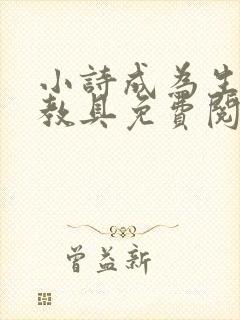 小詩成為生
教具免費閱
曾益新